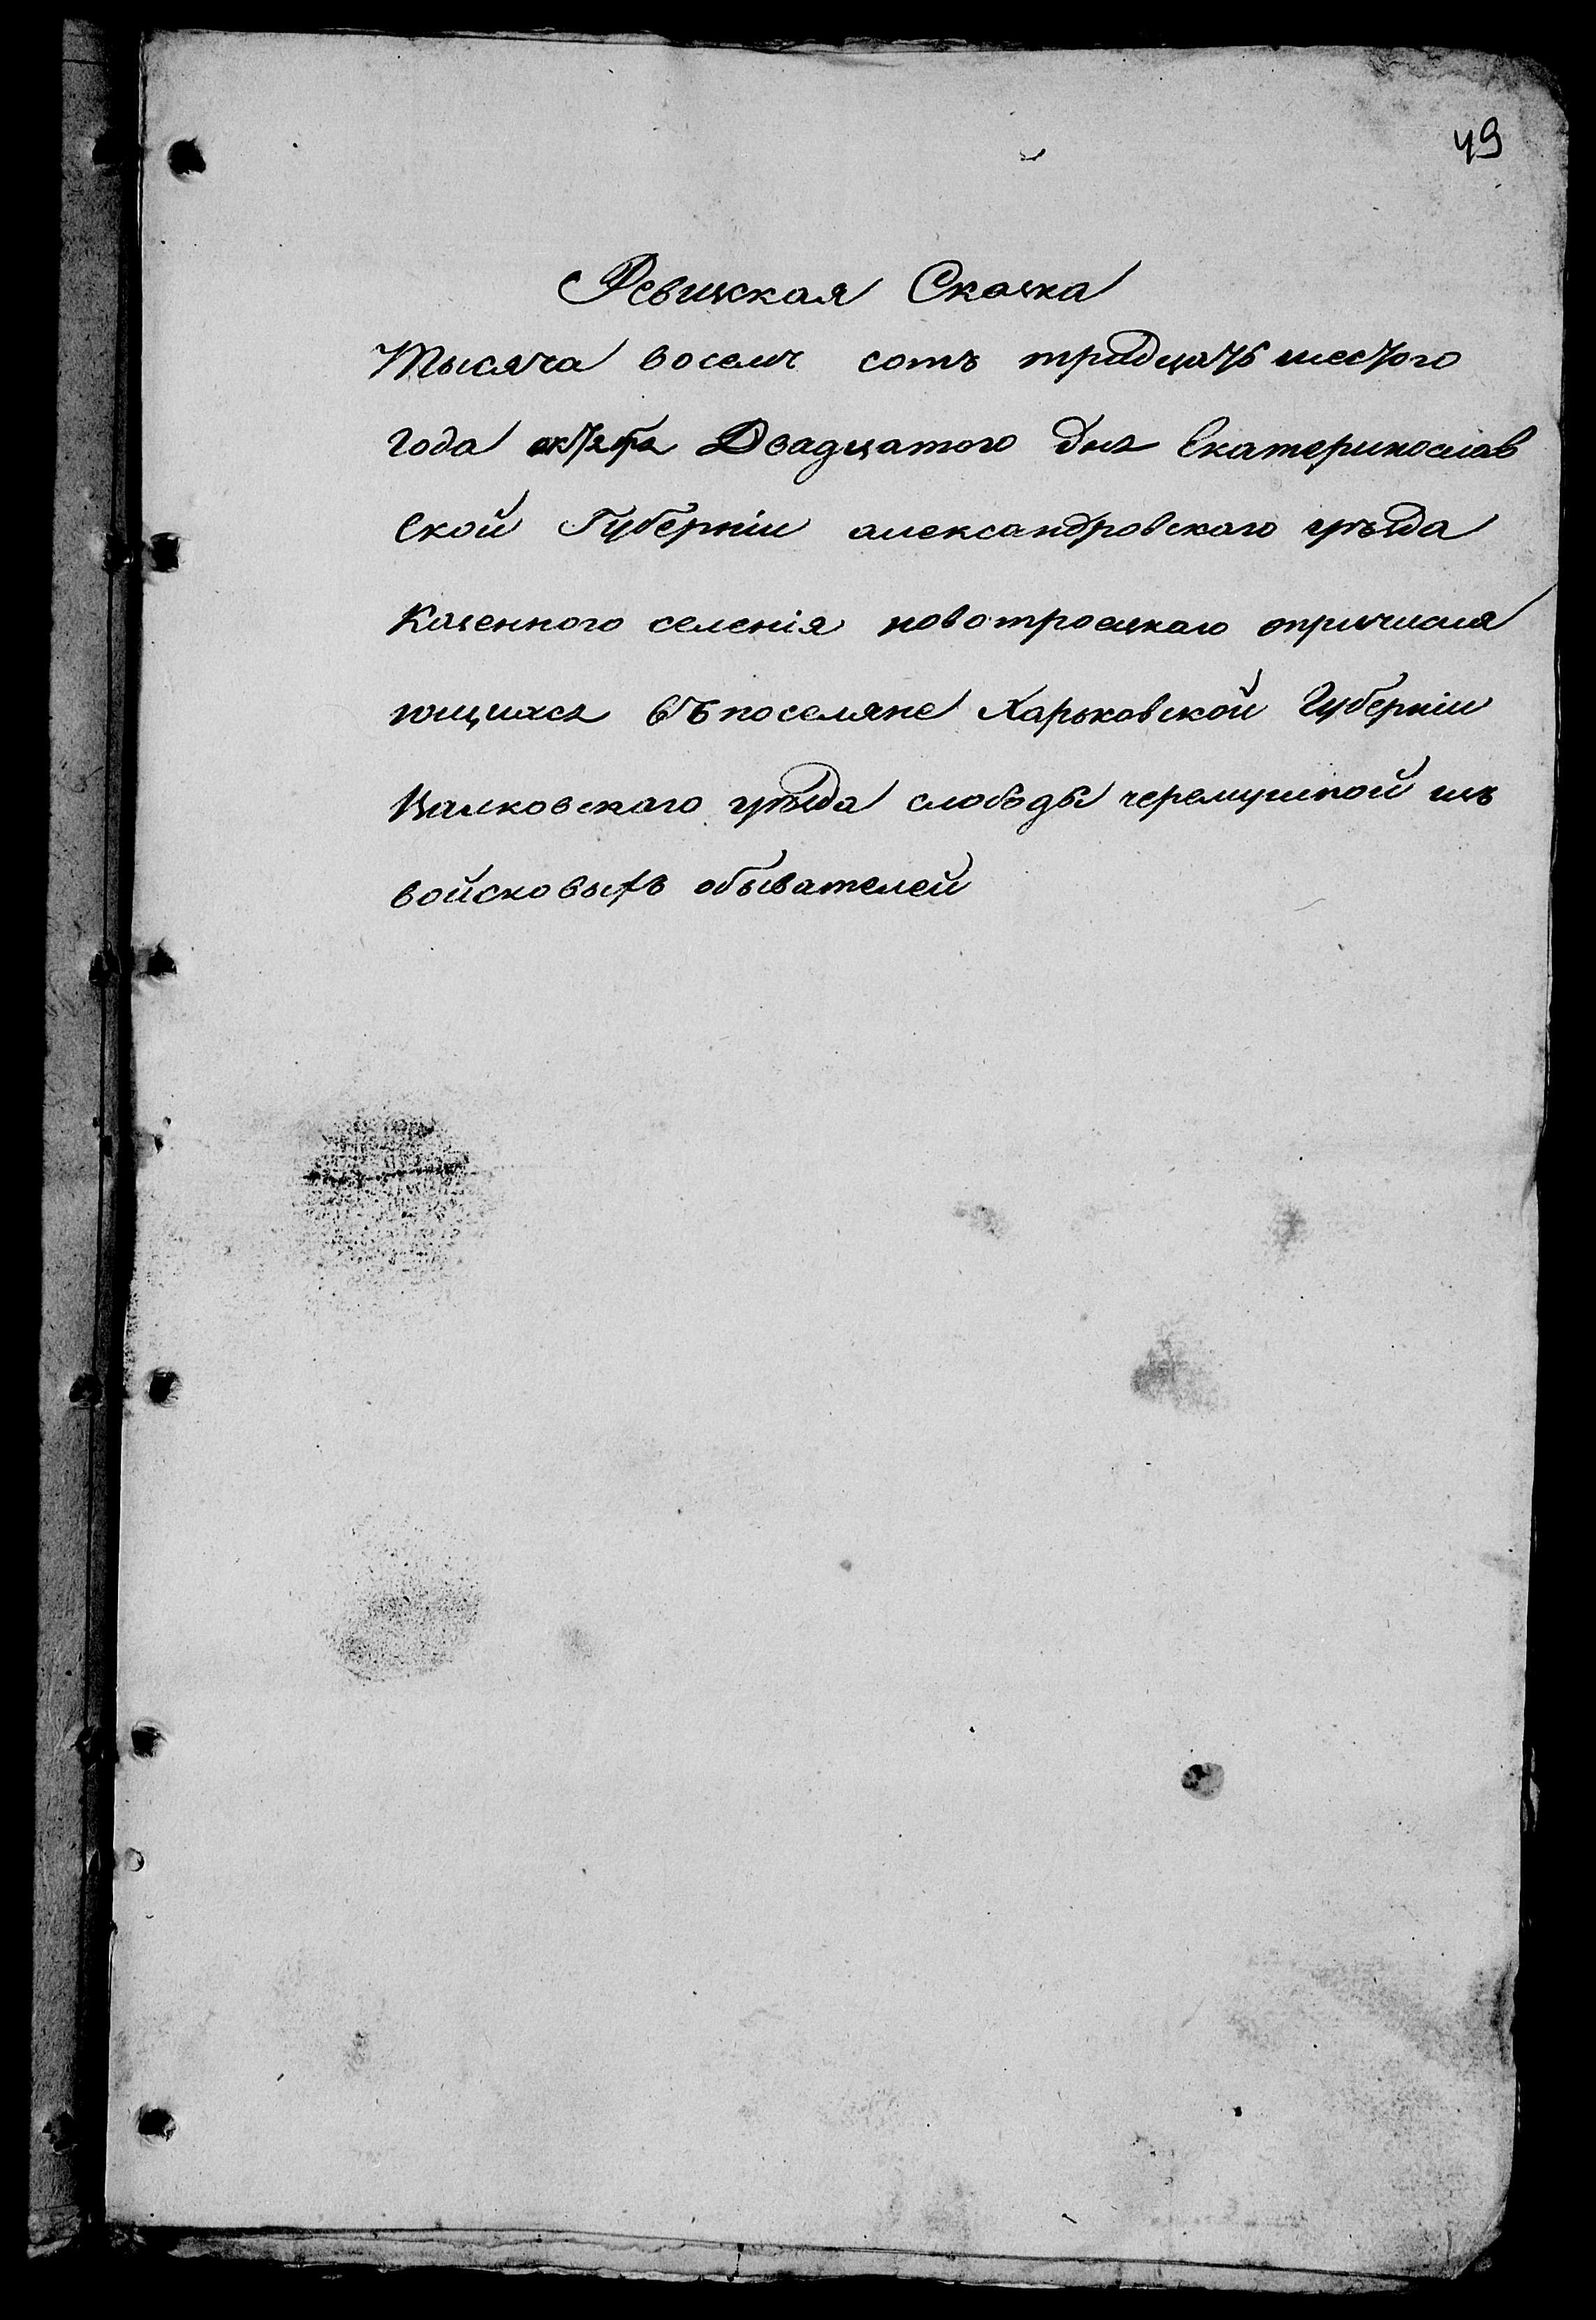 49
Ревиская Скаска
Тысяча восемъ сотъ тридцать шестого
года октября Двадцатого дня Екатеринослав
ской Губерніи александровскаго уезда
Казенного селенія новотроецкаго опричисля
ющихся въ поселяне Харьковской Губерніи
Валковского уезда слободы черемушной изъ
войсковыхъ обывателей